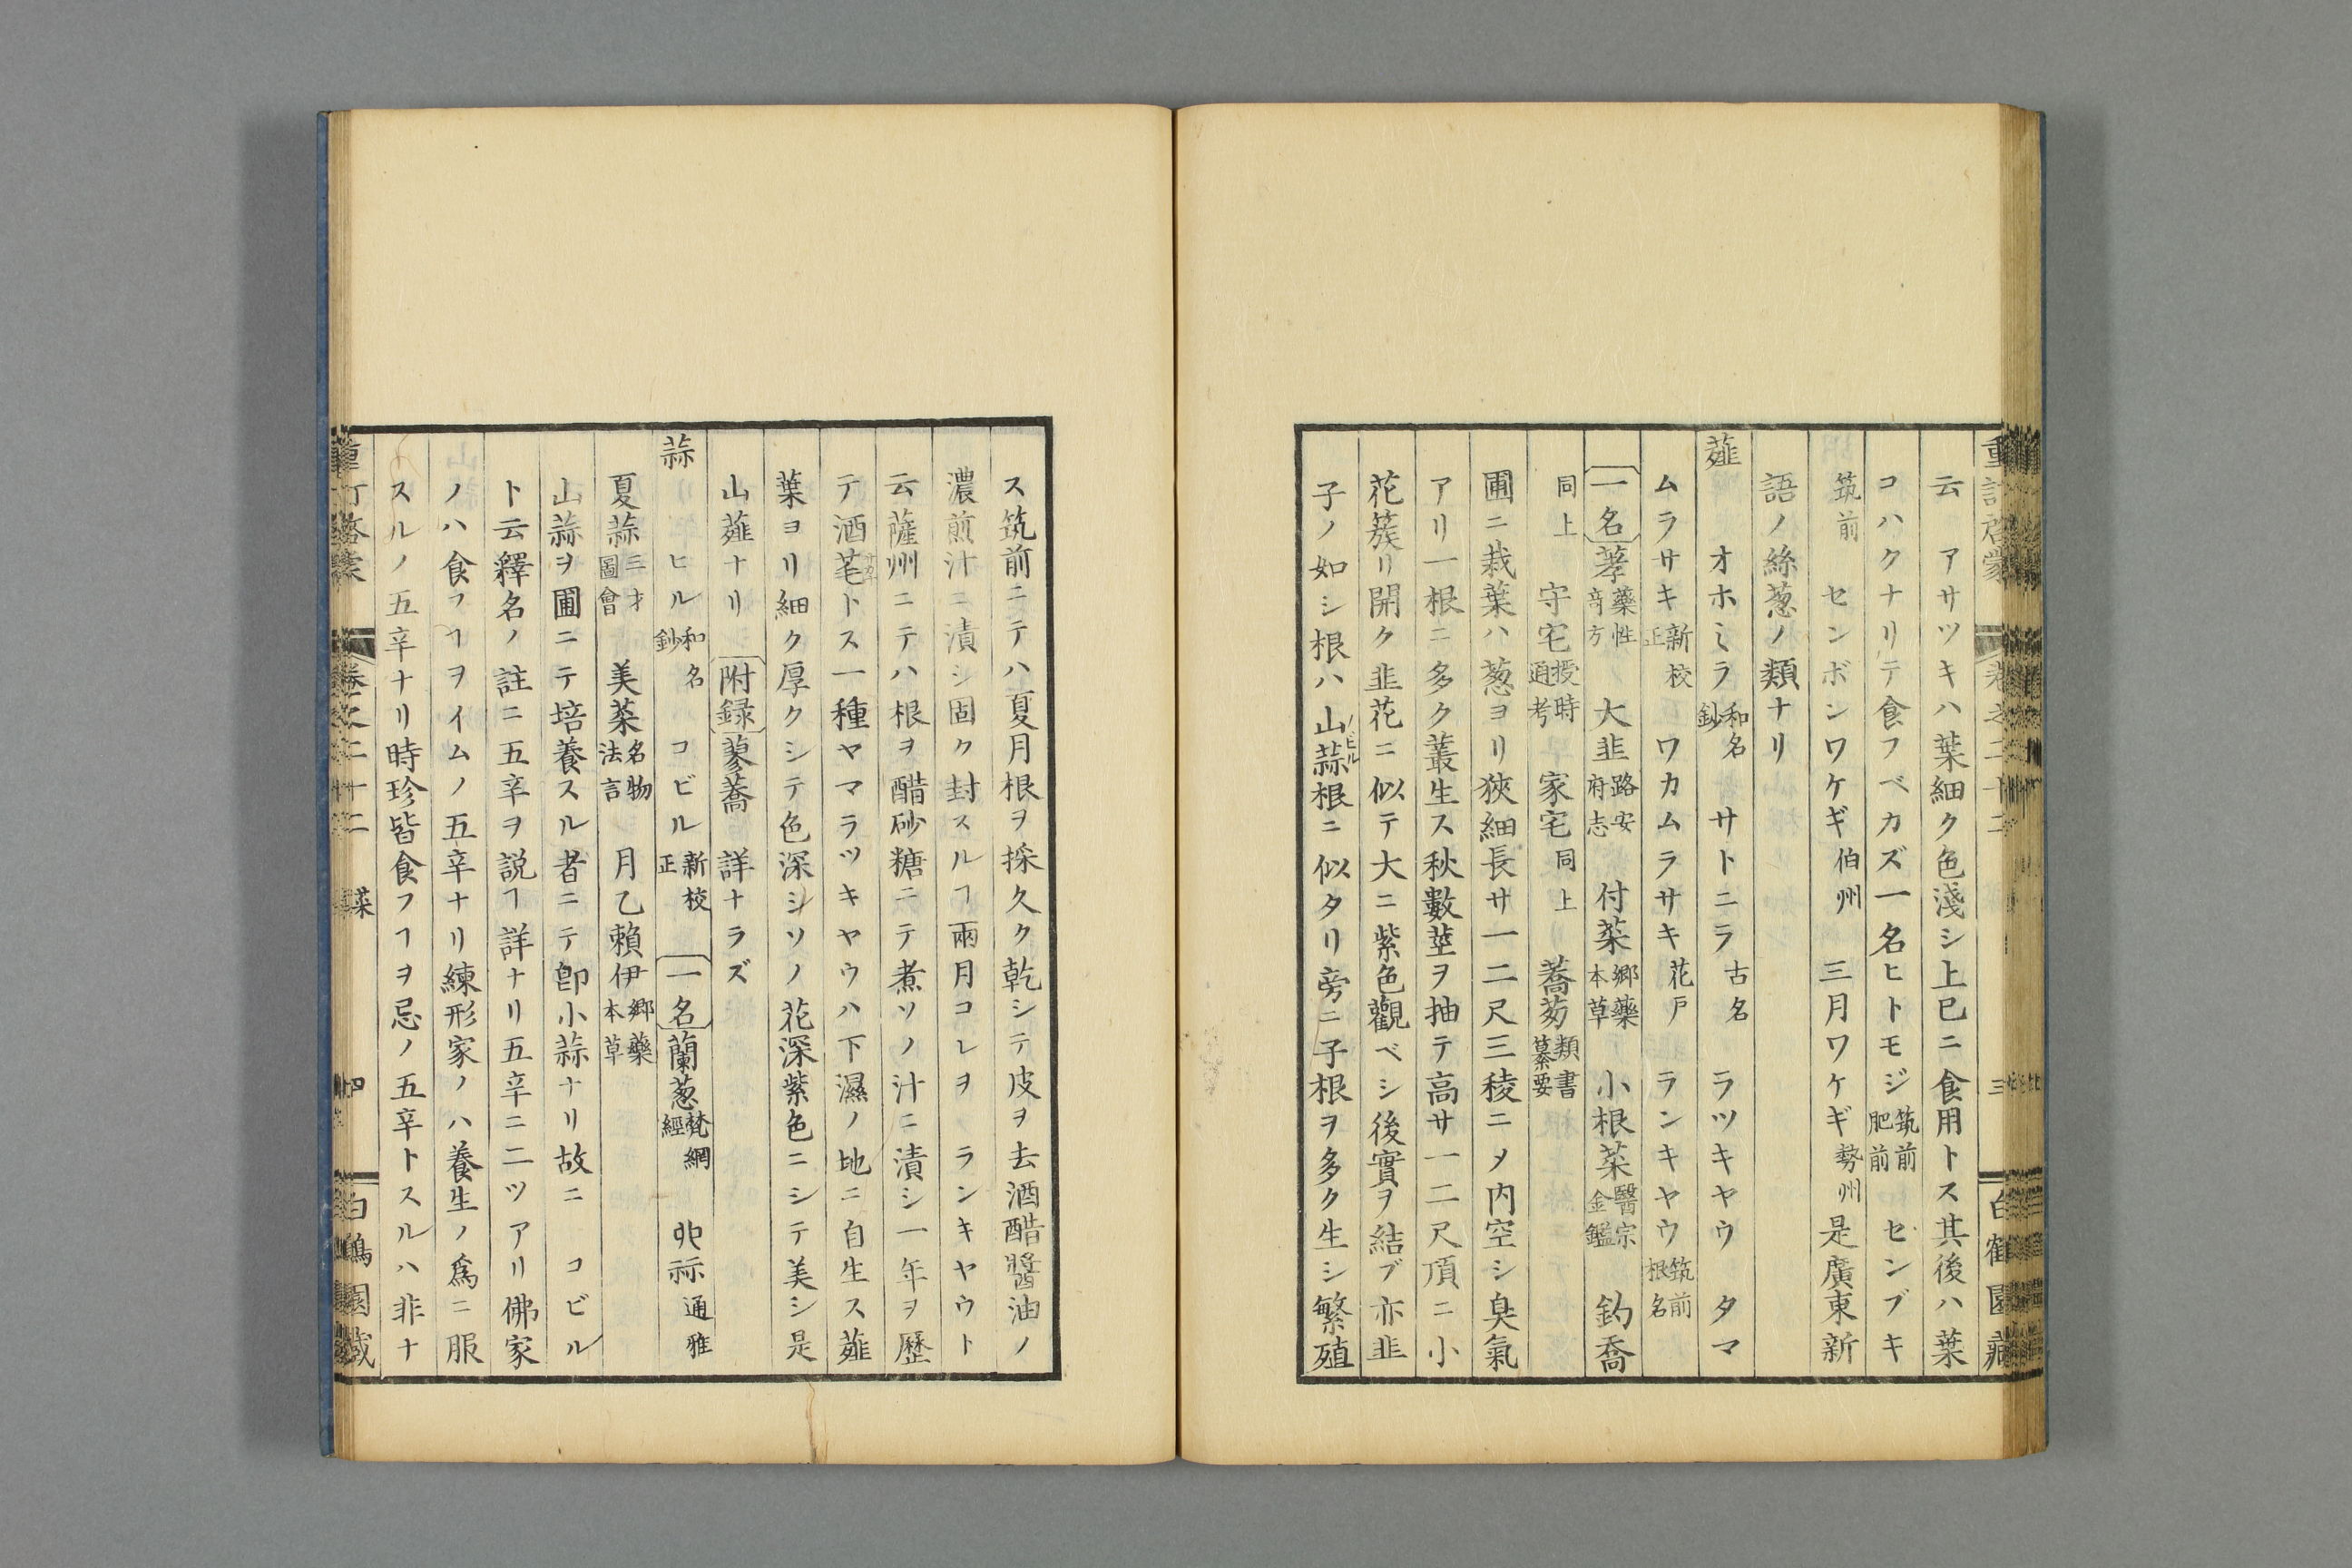 云　アサツキハ葉細ク色淺シ上巳ニ食用トス其後ハ葉
コハクナリテ食フベカズ一名ヒトモジ筑前肥前　センブキ
筑前　センボンワケギ伯州　三月ワケギ勢州是廣東新
語ノ絲葱ノ類ナリ
薤　オホミラ和名鈔　サトニラ古名　ラツキヤウ　タマ
ムラサキ新校正　ワカムラサキ花戸　ランキヤウ筑前根名
一名　藠藥性奇方　大韭路安府志　付菜郷藥本草　小根菜醫宗金鑑　釣喬
同上　守宅授時通考　家宅同上　蕎茐類書纂要
圃ニ栽葉ハ葱ヨリ狹細長サ一二尺三稜ニ〆内空シ臭氣
アリ一根ニ多ク叢生ス秋數莖ヲ抽テ高サ一二尺頂ニ小
花簇リ開ク韭花ニ似テ大ニ紫色觀ベシ後實ヲ結ブ亦韭
子ノ如シ根ハ山蒜ノビル根ニ似タリ旁ニ子根ヲ多ク生シ繁殖
ス筑前ニテハ夏月根ヲ採久ク乾シテ皮ヲ去酒醋醬油ノ
濃煎汁ニ漬シ固ク封スルヿ兩月コレヲ　ランキヤウト
云薩州ニテハ根ヲ醋砂糖ニテ煮ソノ汁ニ漬シ一年ヲ歷
テ酒芼トス一種ヤマラツキヤウハ下濕ノ地ニ自生ス薤
葉ヨリ細ク厚クシテ色深シソノ花深紫色ニシテ美シ是
山薤ナリ　附録　蓼蕎　詳ナラズ
蒜　ヒル和名鈔　コビル新校正　一名　蘭葱梵網經　祘通雅
夏蒜三才圖會　美菜名物法言　月乙賴伊郷藥本草
山蒜ヲ圃ニテ培養スル者ニテ卽小蒜ナリ故ニ　コビル
ト云釋名ノ註ニ五辛ヲ説ヿ詳ナリ五辛ニ二ツアリ佛家
ノハ食フヿヲイムノ五辛ナリ練形家ノハ養生ノ爲ニ服
スルノ五辛ナリ時珍皆食フヿヲ忌ノ五辛トスルハ非ナ
重訂啓蒙　卷之二十二　菜　四　白鶴園藏